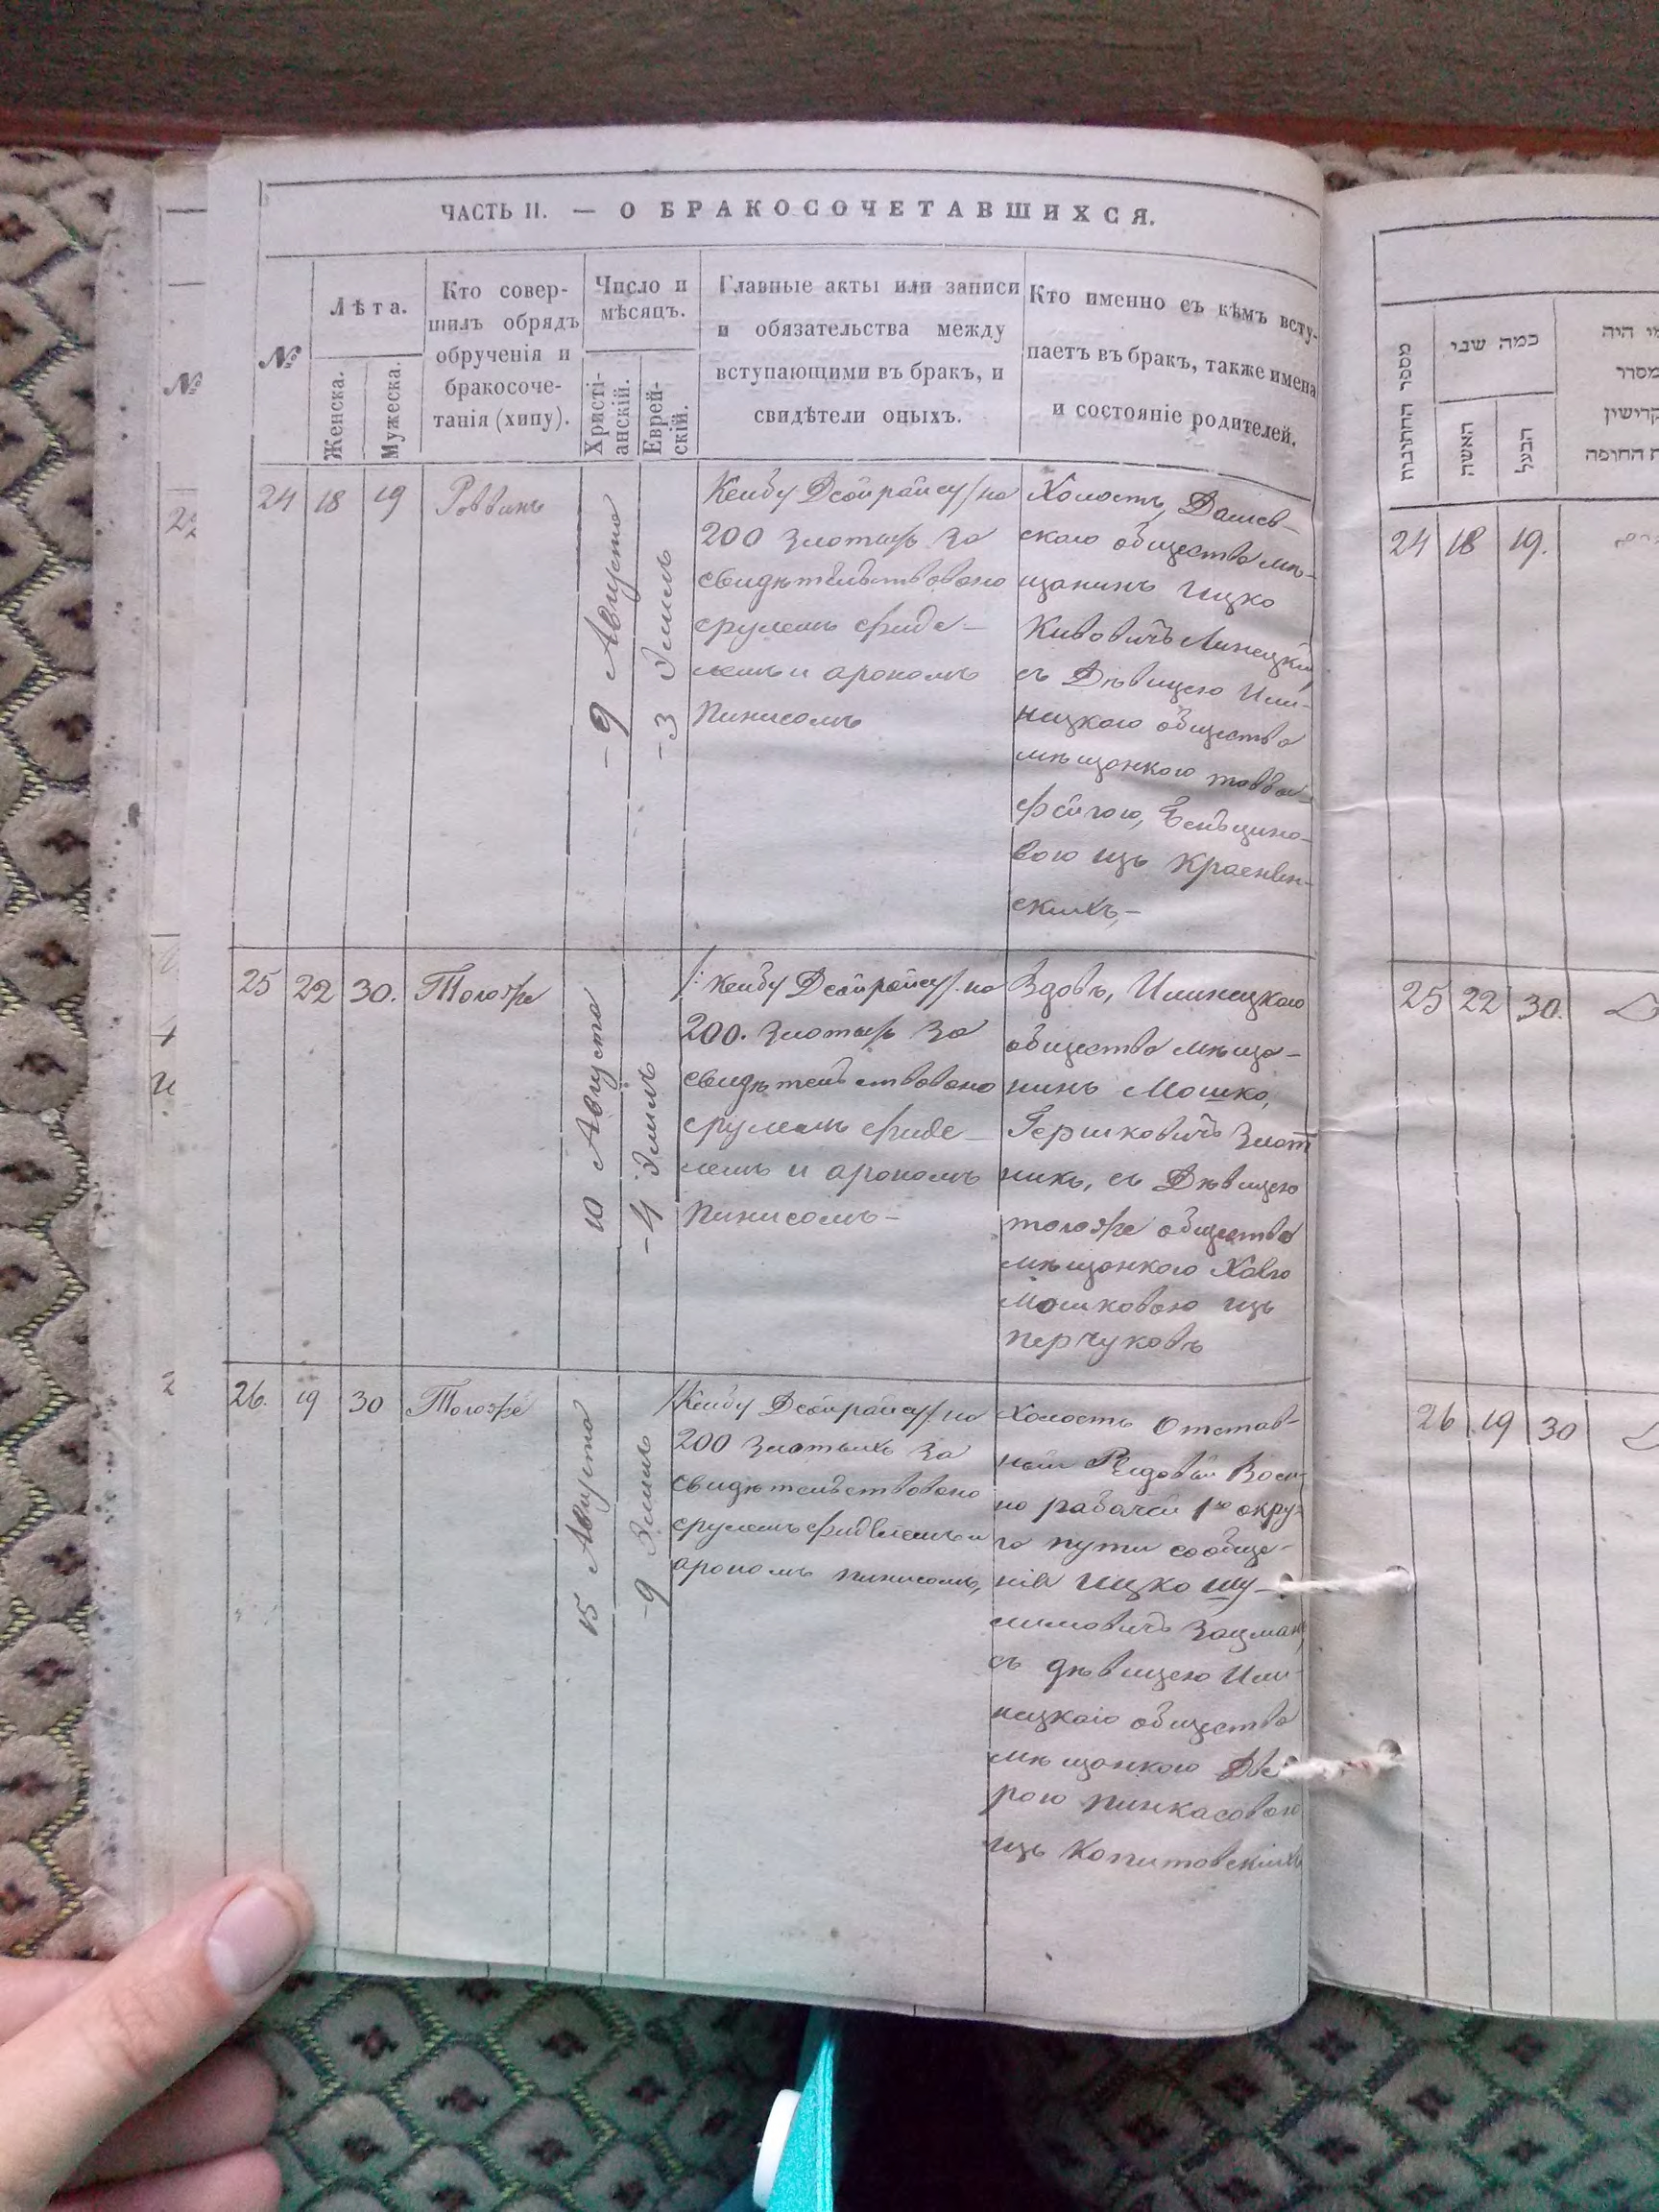 ЧАСТЬ II. — О БРАКОСОЧЕТАВШИХСЯ.
№
Лѣта.
Женска.
Мужеска.
Кто совер-
шилъ обрядъ
обрученія и
бракосоче-
танія (хипу).
Число и
мѣсяцъ.
Христі-
анскій.
Еврей-
скій.
Главные акты или записи
и обязательства между
вступающими въ бракъ, и
свидѣтели оныхъ.
Кто именно съ кѣмъ всту-
паетъ въ бракъ, также имена
и состояніе родителей.
24
18
19
Раввинъ
9 Августа
3 Элиль
200 злотыхъ за
свидѣтельствовано
срулемъ фиде-
лемъ и арономъ
Пинисомъ
Холостъ, Дашев-
скаго общества мѣ-
щанинъ Ицко
Кивовичъ Линецкій
съ Дѣвицею Или-
нецкаго общества
мѣщанкою
фейгою,
вою изъ
скихъ,-
25
22
30.
Тогоже
10 Августа
4 Элиль
200. злотыхъ за
свидѣтельствовано
срулемъ фиде-
лемъ и арономъ
Пинисомъ-
Вдовъ, Илинецкаго
общества мѣща-
нинъ Мошко,
Гершковичъ Злот
никъ, съ Дѣвицею
тогоже общества
мѣщанкою Хавю
Мошковою изъ
перчуковъ
26.
19
30
Тогоже
15 Августа
9 Элиль
200 злотыхъ за
свидѣтельствовано
срулемъ фиделемъ и
арономъ пинисомъ,
Холостъ Отстав-
ный Рядовый Воен-
но рабочей 1го окру-
га пути сообще-
нія Ицко Шу-
лимовичъ Зацман
съ дѣвицею Или-
нецкаго общества
мѣщанкою Дво
рою пинкасовою
изъ Копитовскихъ
№
מספר החתונות
כמה שני
האשה
הבעל
מי היה
מסדר
24
18
19.
25
22
30.
26
19
30